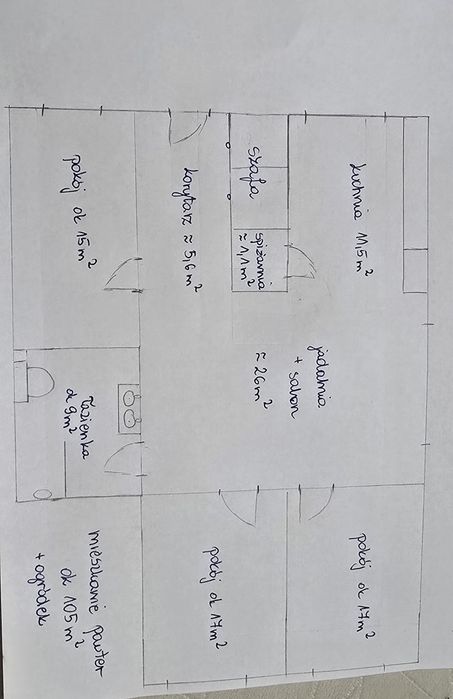 kuchnia 11,5 m²
szafa
spiżarnia
≈ 1,1 m²
korytarz ≈ 5,6 m²
pokój ok 15 m²
jadalnia
+ salon
≈ 26 m²
łazienka
ok 9 m²
pokój ok 17 m²
pokój ok 17 m²
mieszkanie parter
ok 105 m²
+ ogródek